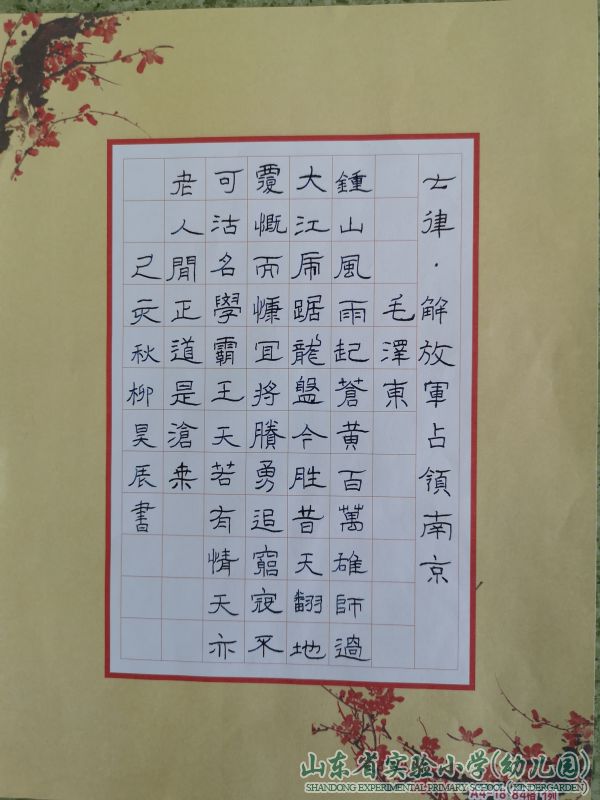 七律·解放軍占領南京
毛澤東
鍾山風雨起蒼黄百萬雄師過
大江虎踞龍盤今胜昔天翻地
覆慨而慷宜將賸勇追窮寇不
可沽名學霸王天若有情天亦
老人間正道是滄桑
己亥秋柳昊辰書
山东省实验小学(幼儿园)
SHANDONG EXPERIMENTAL PRIMARY SCHOOL (KINDERGARDEN)